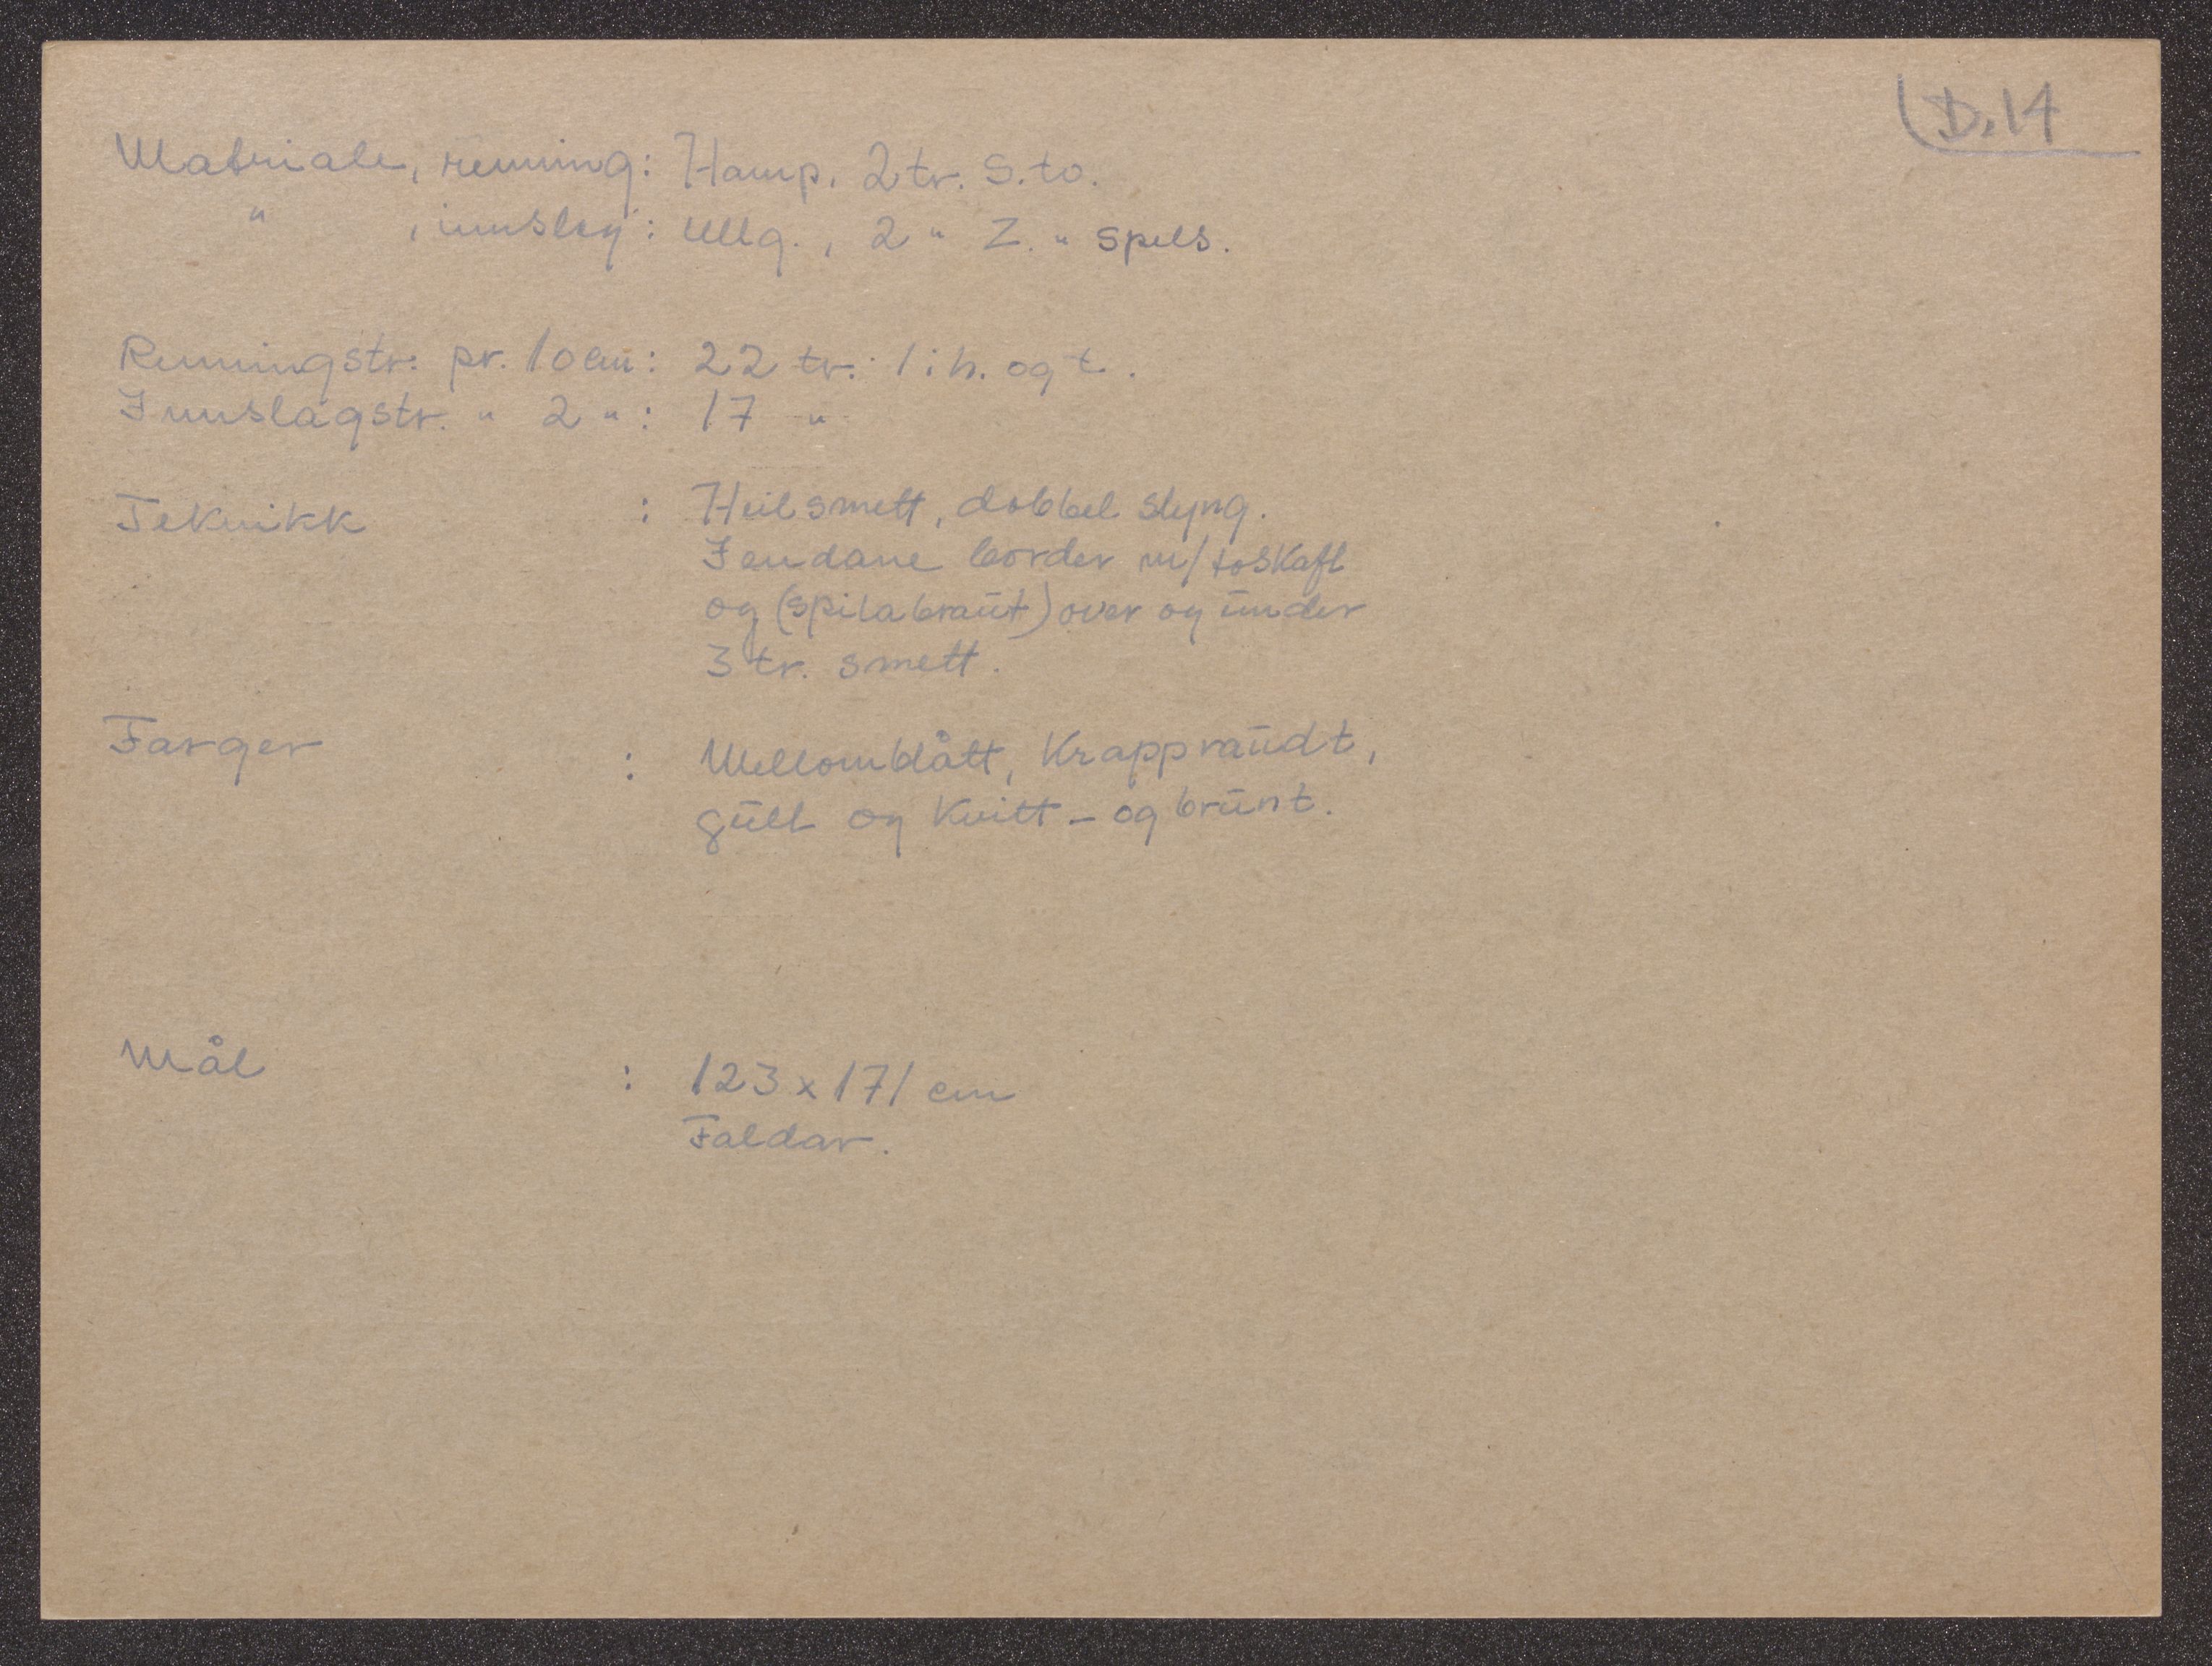 D.14
Materiale, renning: Hamp. 2 tr. S. to.
" , innslag: Ullg., 2 " Z. " spels.
Renningstr. pr. 10 cm: 22 tr. 1 i h. og t.
Innslagstr. " 2 " : 17 "
Teknikk : Heilsmett, dobbel slyng.
Jendane border m/ toskaft
og (spilabraut) over og under
3 tr. smett.
Farger : Mellomblått, Krappraudt,
gult og Kvitt - og brunt.
Mål : 123 x 171 cm
Faldar.